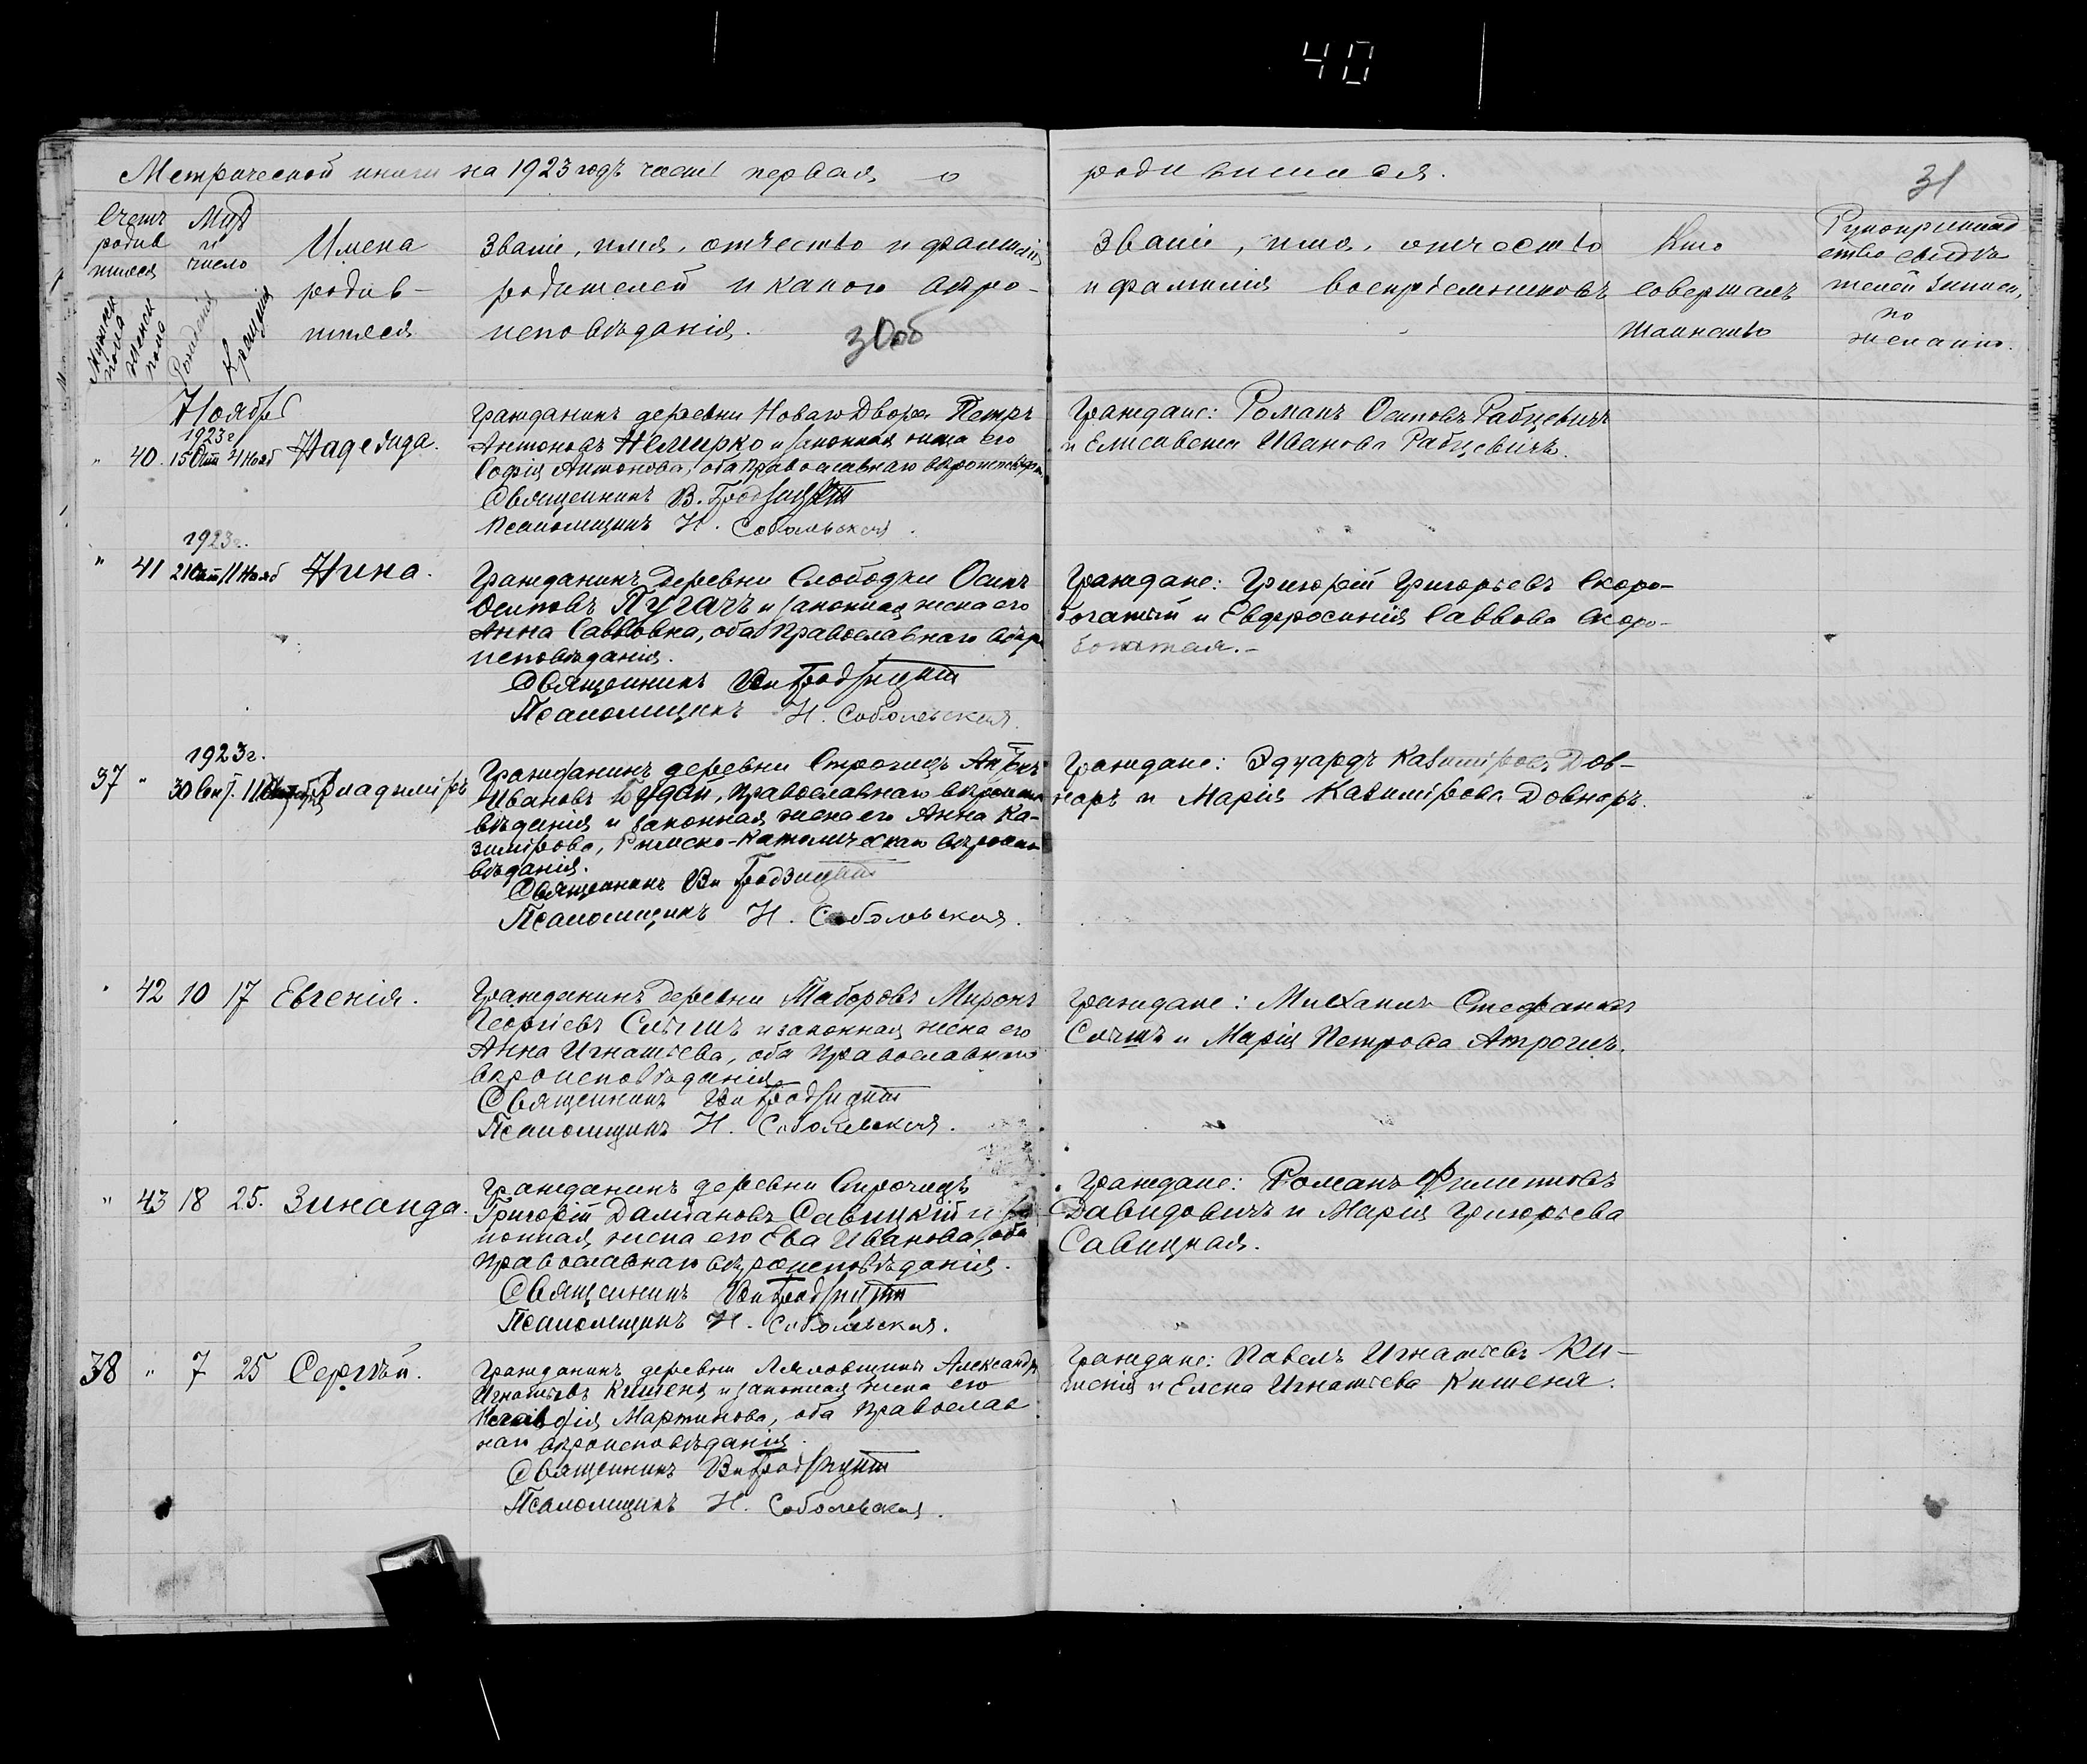 40
Метрической книги на 1923 годъ часть первая, о родившихся.
31
Счетъ родив шихся
Мужск пола
Женск пола
М-цъ и число
Рожденія
Крещенія
Имена родив- шихся
Званіе, имя, отчество и фамилія
родителей и какого вѣро-
исповѣданія.
30об
Званіе, имя, отчество
и фамилія воспріемниковъ
Кто совершалъ таинство
Рукоприклад ство свидѣ телей записи, по желанію.
Ноябрь
1923 г
" 40. 15 Окт 4 Нояб Надежда.
Гражданинъ деревни Новаго Двора Петръ
Антоновъ Немирко и законная жена его
Софія Антонова, оба Православнаго
Священникъ В.
Псаломщикъ Н. Собольская.
Граждане: Романъ Осиповъ Рабцевичъ
и Елисавета Иванова Рабцевичъ.
1923 г.
" 41 21 Окт 11 Нояб Нина.
Гражданинъ деревни Слободки Осипъ
Осиповъ Пугачъ и законная жена его
Анна Саввовна, оба Православнаго вѣро
исповѣданія.
Священникъ
Псаломщикъ Н. Соболевская.
Граждане: Григорій Григорьевъ Скоро-
богатый и Евфросинія Саввова Скоро-
богатая.-
1923 г.
37 " 30 Сент. 11 Владиміръ
Гражданинъ деревни Строчицъ Антонъ
Ивановъ Будай, Православнаго вѣроиспо
вѣданія и законная жена его Анна Ка-
зимірова, Римско-Католическаго вѣроиспо
вѣданія.
Священникъ
Псаломщикъ Н. Собольская.
Граждане: Эдуардъ Казиміровъ Дов-
наръ и Марія Казимірова Довнаръ.
" 42 10 17 Евгенія.
Гражданинъ деревни Таборовъ Миронъ
Георгіевъ Сытшъ и законная жена его
Анна Игнатьева, оба Православнаго
вѣроисповѣданія
Священникъ
Псаломщикъ Н. Соболевская.
Граждане: Михаилъ Стефановъ
и Марія Петрова
" 43 18 25. Зинаида.
Гражданинъ деревни Строчицъ
Григорій Даміановъ Савицкій и за
конная жена его Ева Иванова, оба
Православнаго вѣроисповѣданія.
Священникъ
Псаломщикъ Н. Соболевская.
Граждане: Романъ Филипповъ
Давидовичъ и Марія Григорьева
Савицкая.
38 " 7 25 Сергѣй.
Гражданинъ деревни Александръ
Игнатьевъ Кишеня и законная жена его
Мартинова, оба Православ
наго вѣроисповѣданія.
Священникъ
Псаломщикъ Н. Соболевская.
Граждане: Павелъ Игнатьевъ Ки-
шеня и Елена Игнатьева Кишеня.